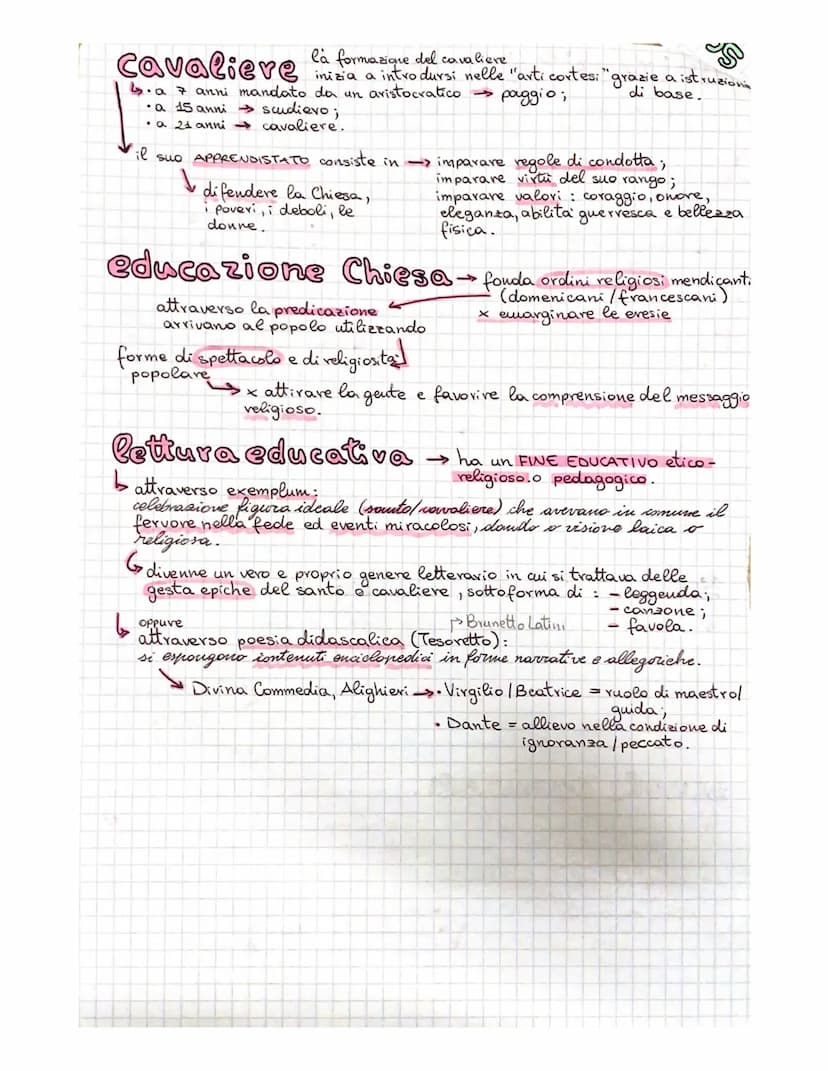 cavaliere là formazione del cavaliere
inizia a introdursi nelle "arti cortesi" grazie a istruzioni
di base.
↳ • a 7 anni mandato da un aristocratico → paggio;
• a 15 anni → scudiero;
• a 21 anni → cavaliere.
il suo APPRENDISTATO consiste in → imparare regole di condotta;
imparare virtù del suo rango;
imparare valori: coraggio, onore,
eleganza, abilità guerresca e bellezza
fisica.
difendere la Chiesa,
i poveri, i deboli, le
donne.
educazione Chiesa → fonda ordini religiosi mendicanti
(domenicani/francescani)
x emarginare le eresie
attraverso la predicazione
arrivano al popolo utilizzando
forme di spettacolo e di religiosità
popolare
x attirare la gente e favorire la comprensione del messaggio
religioso.
lettura educativa → ha un FINE EDUCATIVO etico-
religioso o pedagogico.
↳ attraverso exemplum:
celebrazione figura ideale (santo/cavaliere) che avevano in comune il
fervore nella fede ed eventi miracolosi, dando o visione laica o
religiosa.
divenne un vero e proprio genere letterario in cui si trattava delle
gesta epiche del santo o cavaliere, sottoforma di: - leggenda;
- canzone;
- favola.
oppure
Brunetto Latini
↳ attraverso poesia didascalica (Tesoretto):
si espongono contenuti enciclopedici in forme narrative e allegoriche.
Divina Commedia, Alighieri → • Virgilio/Beatrice = ruolo di maestro/
guida;
• Dante = allievo nella condizione di
ignoranza/peccato.